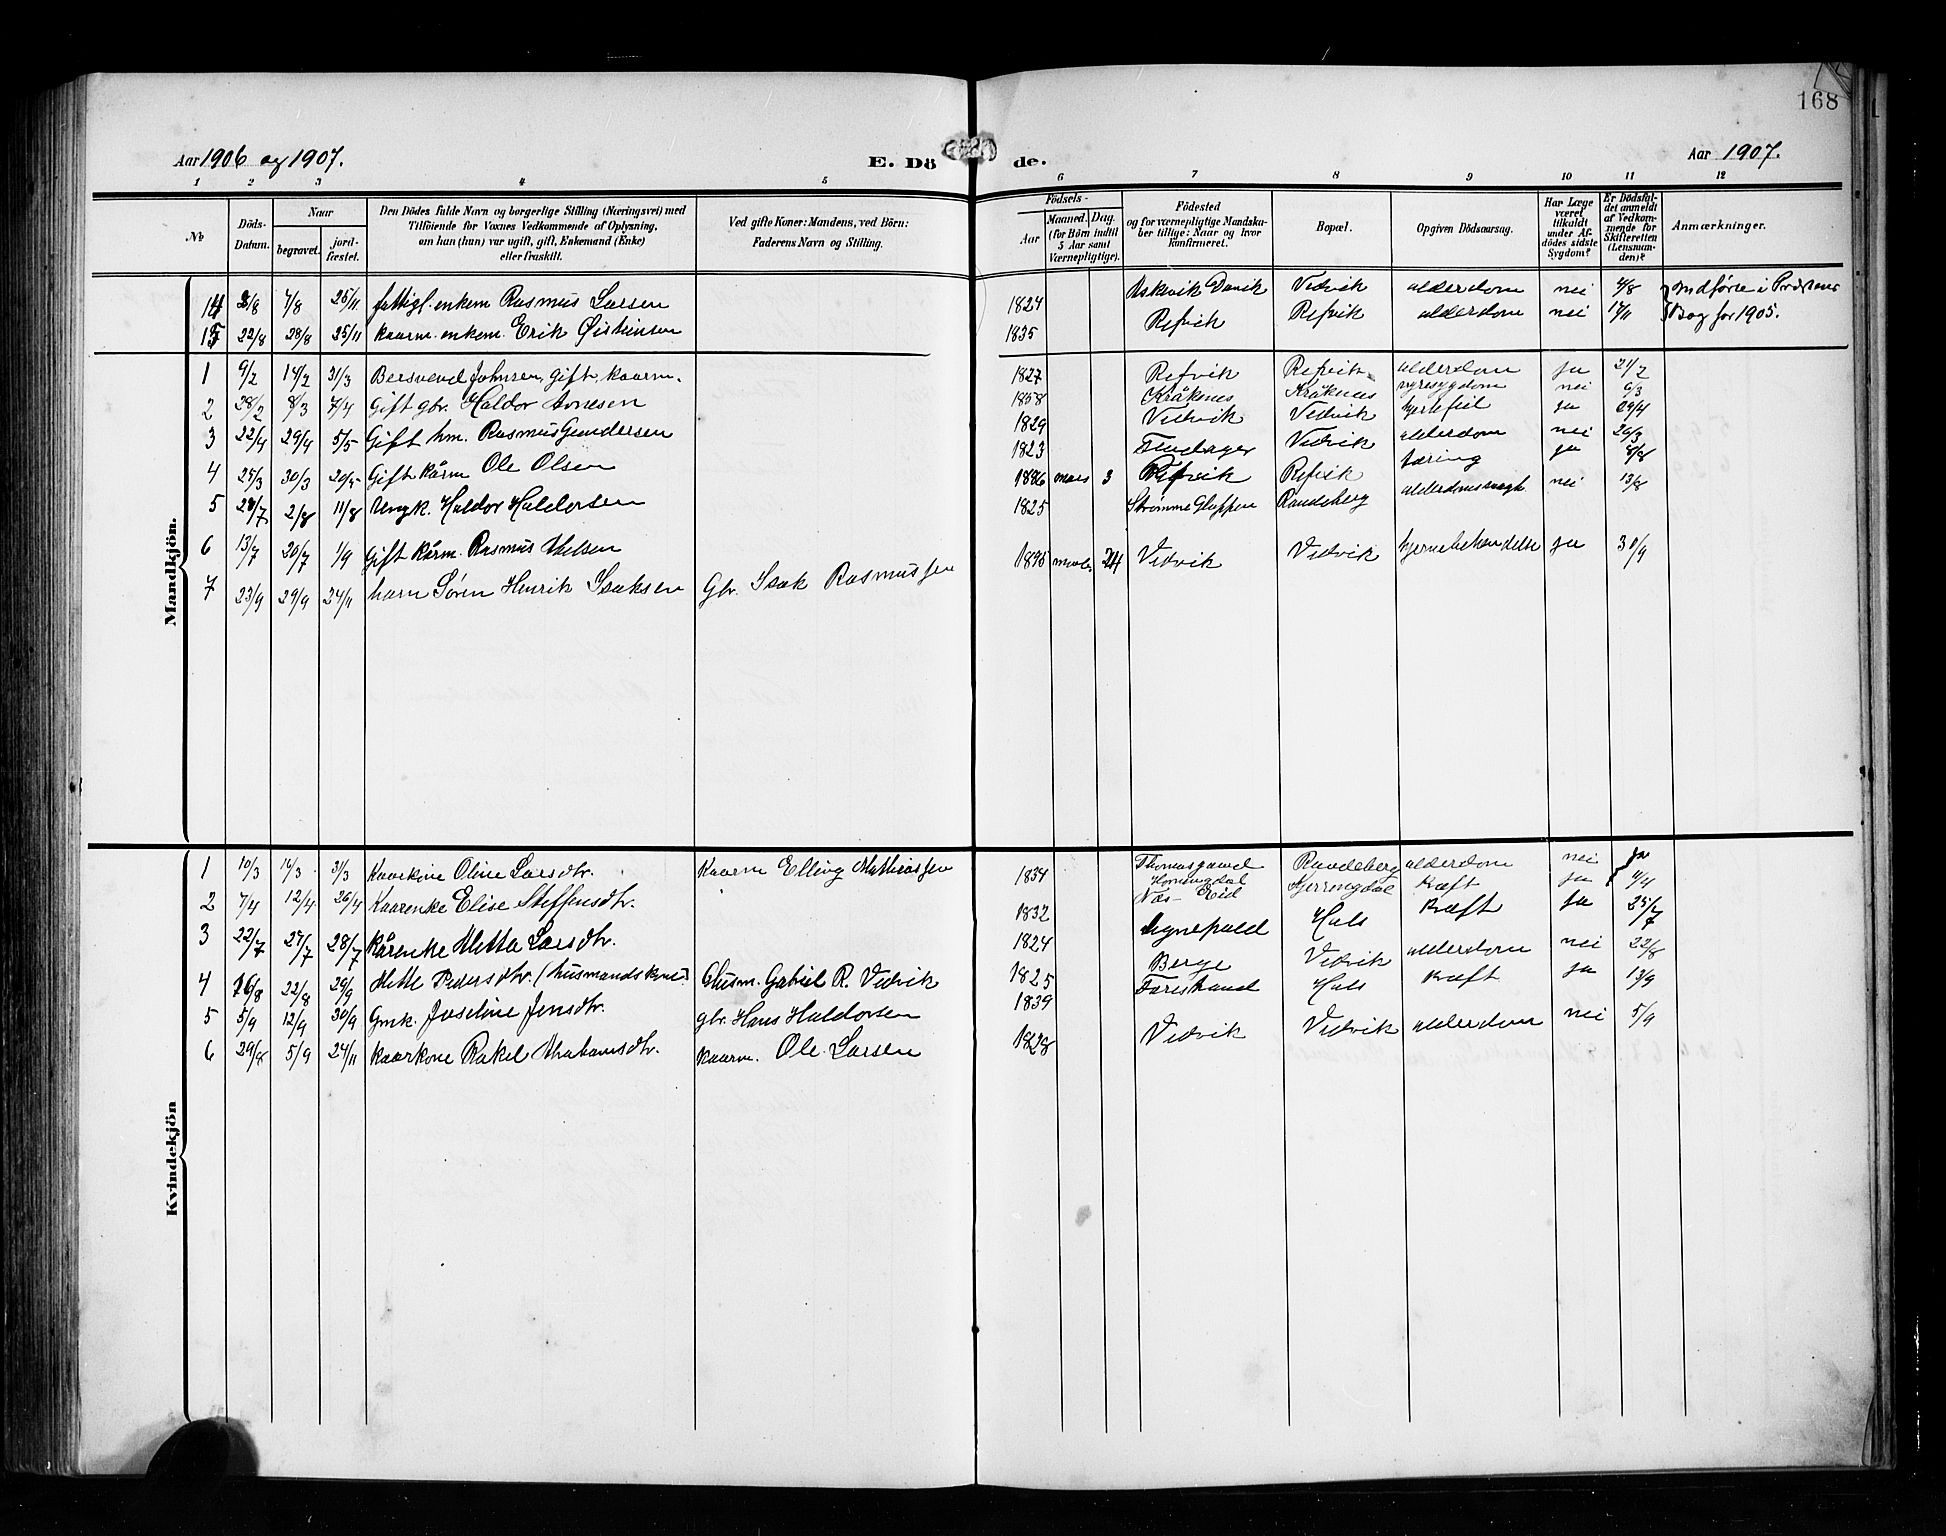 168
Aar 1906 og 1907. E. Dö de. Aar 1907.
1 2 3 4 5 6 7 8 9 10 11 12
No
Döds-Datum.
Naar
begravet.
jordfæstet.
Den Dödes fulde Navn og borgerlige Stilling (Næringsvei) med Tilföiende for Voxnes Vedkommende af Oplysning, om han (hun) var ugift, gift, Enkemand (Enke) eller fraskilt.
Ved gifte Koner: Mandens, ved Börn: Faderens Navn og Stilling.
Födsels-
Aar
Maaned. Dag.
(for Börn indtil 5 Aar samt Værnepligtige).
Födested og for værnepligtige Mandskaber tillige: Naar og hvor konfirmeret.
Bopæl.
Opgiven Dödsaarsag.
Har Læge været tilkaldt under Afdödes sidste Sygdom?
Er Dödsfaldet anmeldt af Vedkommende for Skifteretten (Lensmanden)?
Anmærkninger.
Mandkjön.
14 3/8 7/8 25/11 fattigl. enkem Rasmus Larsen 1824 Askevik Davik Vedvik alderdom nei 4/8 Indførte i Præstens
15 22/8 28/8 25/11 kaarm. enkem. Erik Øistensen 1835 Refvik Refvik alderdom nei 17/11 Bog for 1905.
1 9/2 14/2 31/3 Bersvend Johnsen, gift, kaarm. 1827 Refvik Refvik alderdom ja 21/2
2 28/2 8/3 7/4 Gift gbr. Haldor Arnesen 1858 Kråknes Kråknes nyresygdom nei 6/3
3 22/4 29/4 5/5 Gift hm. Rasmus Gundersen 1829 Vedvik Vedvik hjertefeil ja 29/4
4 25/3 30/3 20/5 Gift kårm Ole Olsen 1823 Vedvik alderdom nei 26/3
5 2/8 11/8 Ungk. Haldor Haldorsen 1886 mars 3 Refvik Refvik tæring ja 8/8
6 13/7 20/7 1/9 Gift kårm. Rasmus 1825 Strømme Gloppen Raudeberg nei 13/8
7 23/9 29/9 24/11 barn Søren Henrik Isaksen Gbr. Isak Rasmussen 24 Vedvik Vedvik ja 30/9
Kvindekjön
1 10/3 16/3 31/3 Kaarkone Oline Larsdtr. Kaarm Elling Mathiassen 1834 Thomasgaard Honningdal Raudeberg alderdom nei ja
2 7/4 12/4 26/4 Kaarenke Elise Steffensdtr. 1832 Næs Eid Hjerringdal Kræft ja 11/4
3 22/7 27/7 28/7 Kårenke Mette Larsdtr. 1824 Hals Kræft ja 25/7
4 16/8 22/8 29/9 Mette Pedersdtr. (husmandskone) Husm. Gabriel R. Vedvik 1825 Berge Vedvik alderdom nei 22/8
5 5/9 12/9 30/9 Gmk. Joseline Jensdtr. gbr. Hans Haldorsen 1839 Færestrand Hals Kræft ja 13/9
6 29/8 5/9 24/11 kaarkone Rakel Abrahamsdtr. kaarm. Ole Larsen 1828 Vedvik Vedvik alderdom nei 5/9